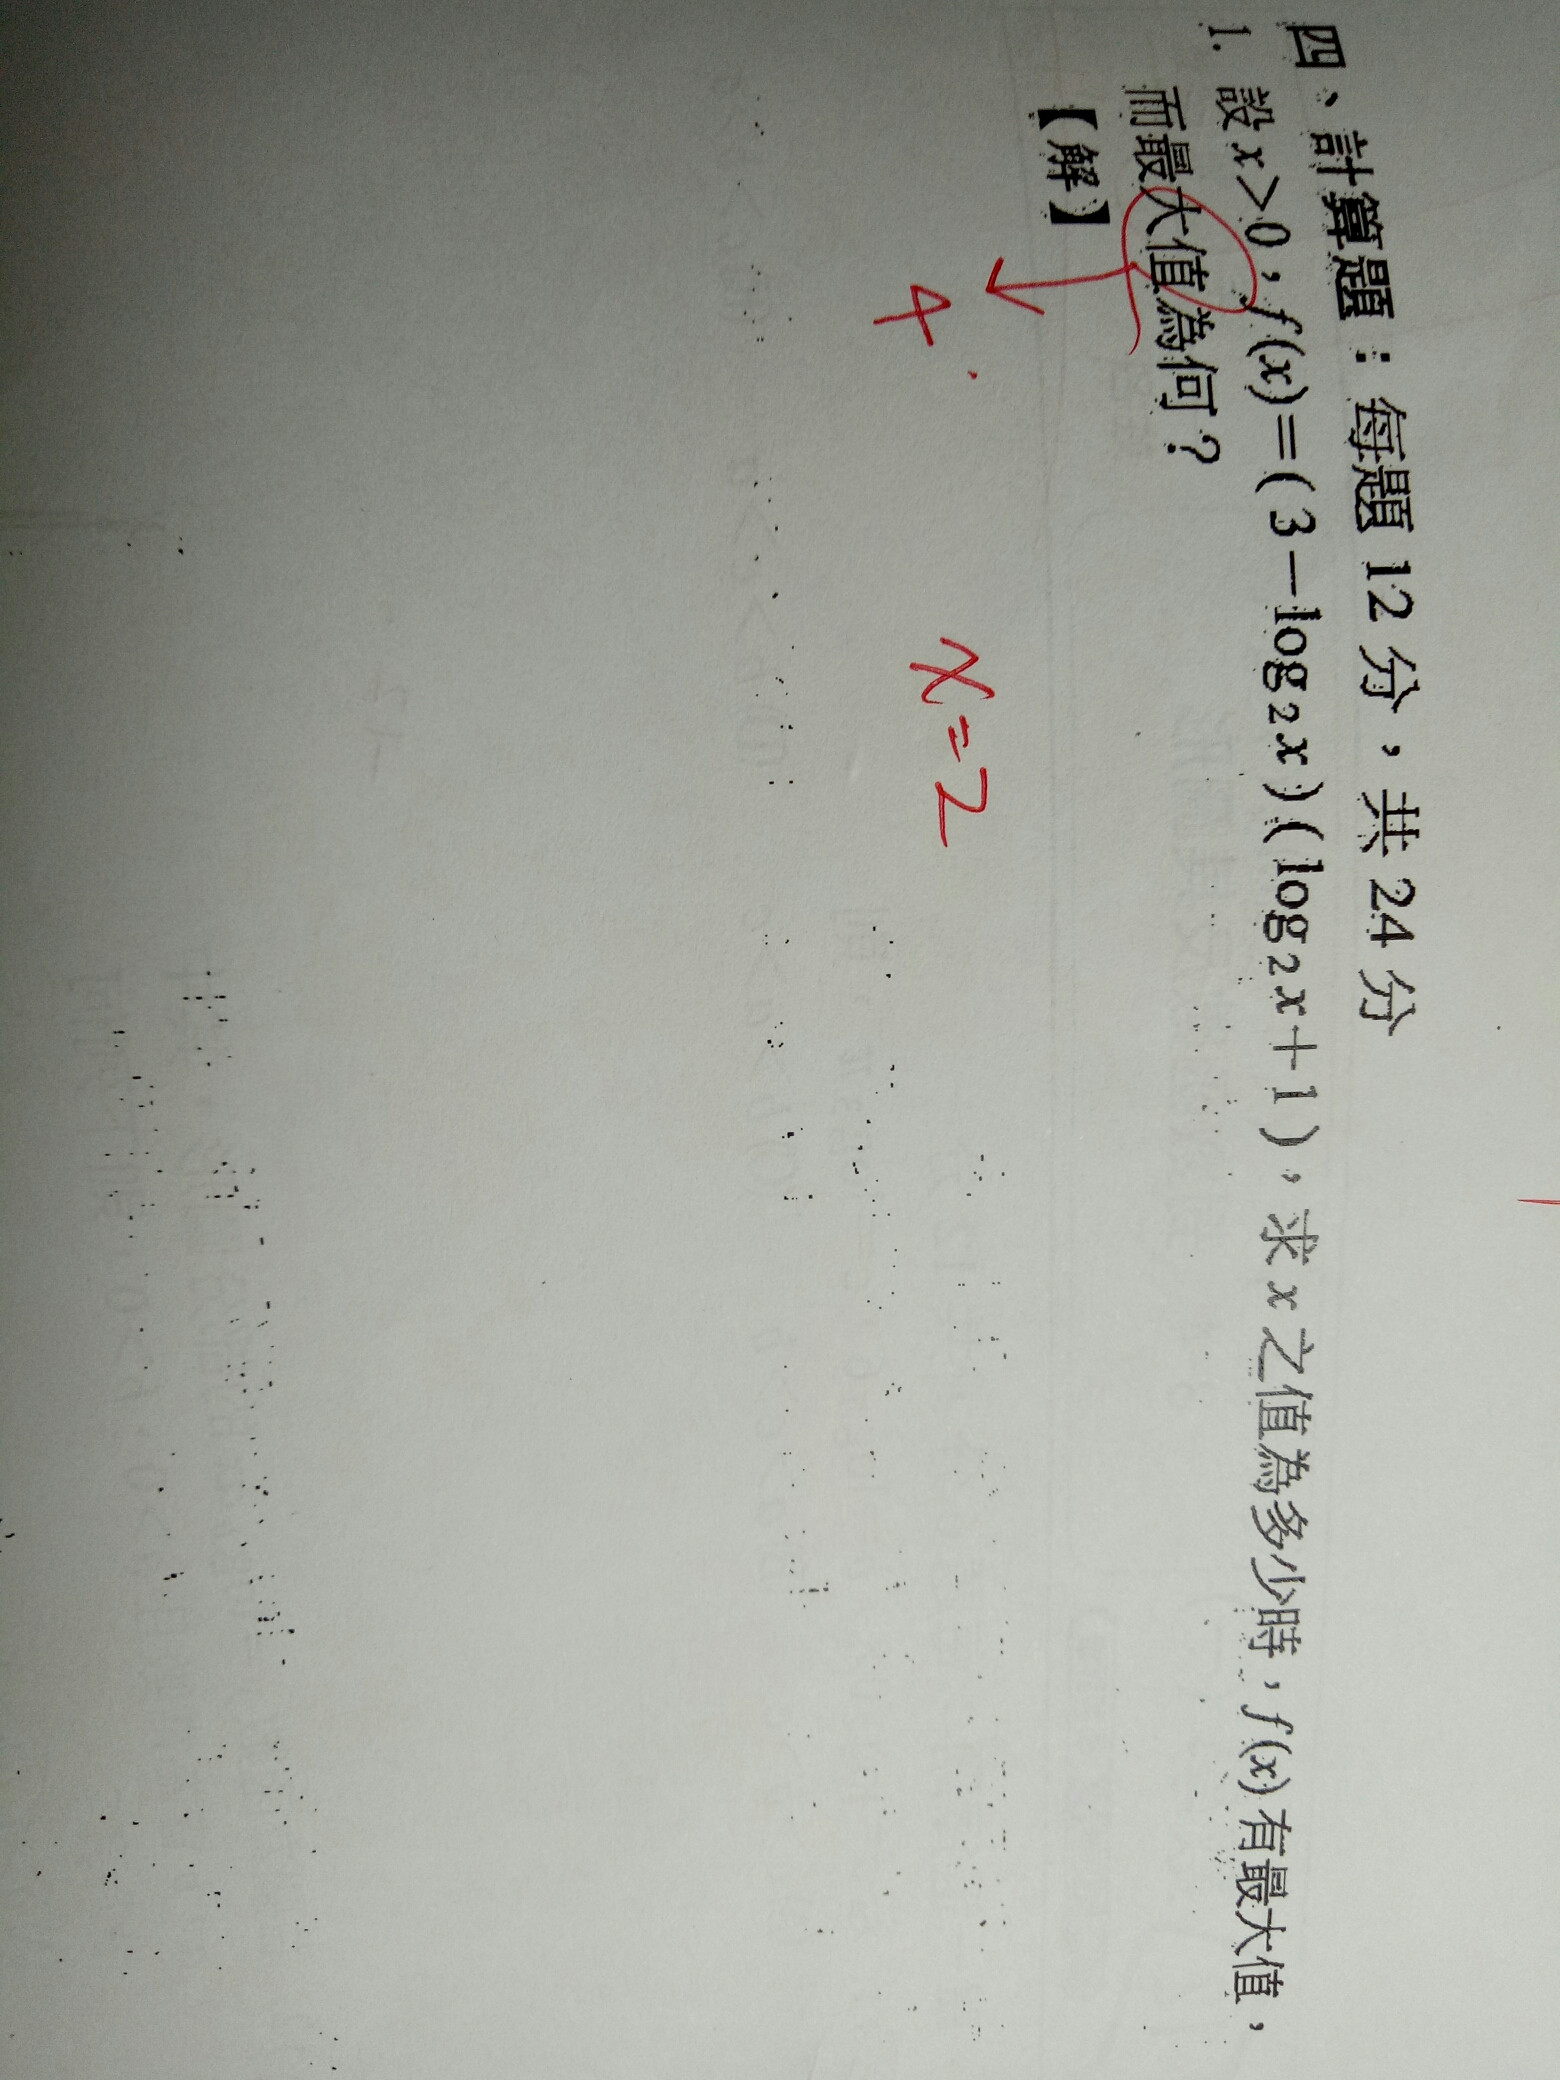 四、計算題：每題 12 分，共 24 分
1. 設 x＞0，f(x)＝(3－log₂x)(log₂x＋1)，求 x 之值為多少時，f(x) 有最大值，
而最大值為何？
【解】
4
x=2